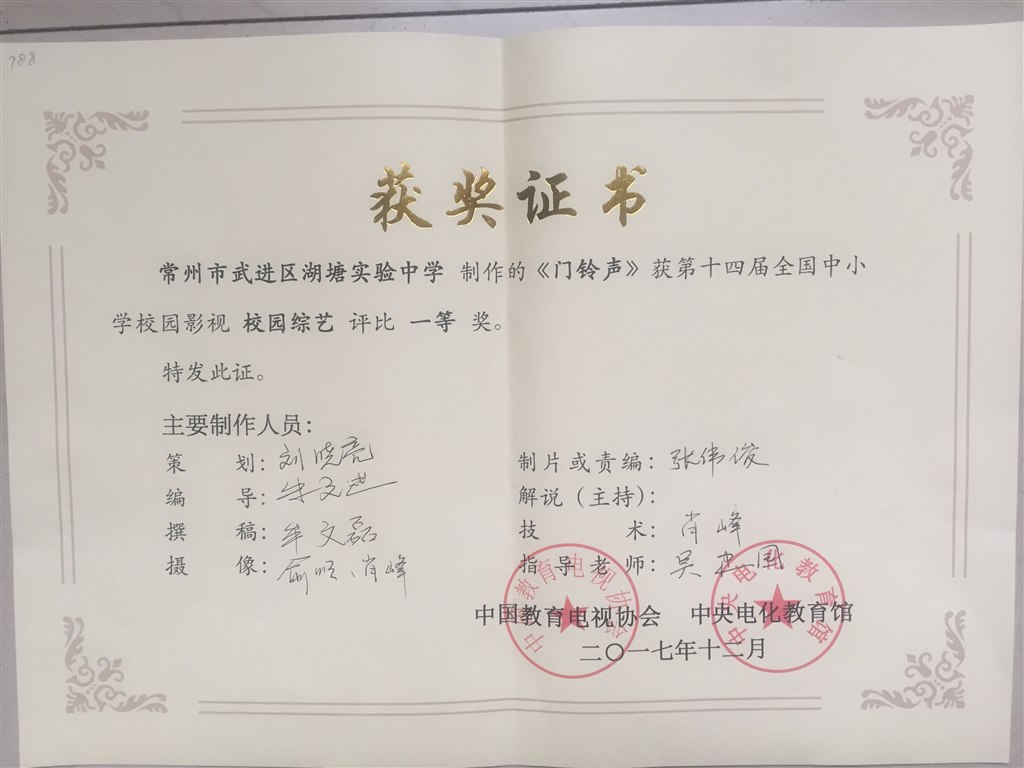 788
获奖证书
常州市武进区湖塘实验中学 制作的《门铃声》获第十四届全国中小
学校园影视 校园综艺 评比 一等 奖。
特发此证。
主要制作人员：
策 划：刘晓亮
制片或责编：张伟俊
编 导：朱文进
解说（主持）：
撰 稿：牟文磊
技 术：肖峰
摄 像：俞顺、肖峰
指导老师：吴国
中国教育电视协会 中央电化教育馆
二〇一七年十二月
中国教育电视协会
中央电化教育馆